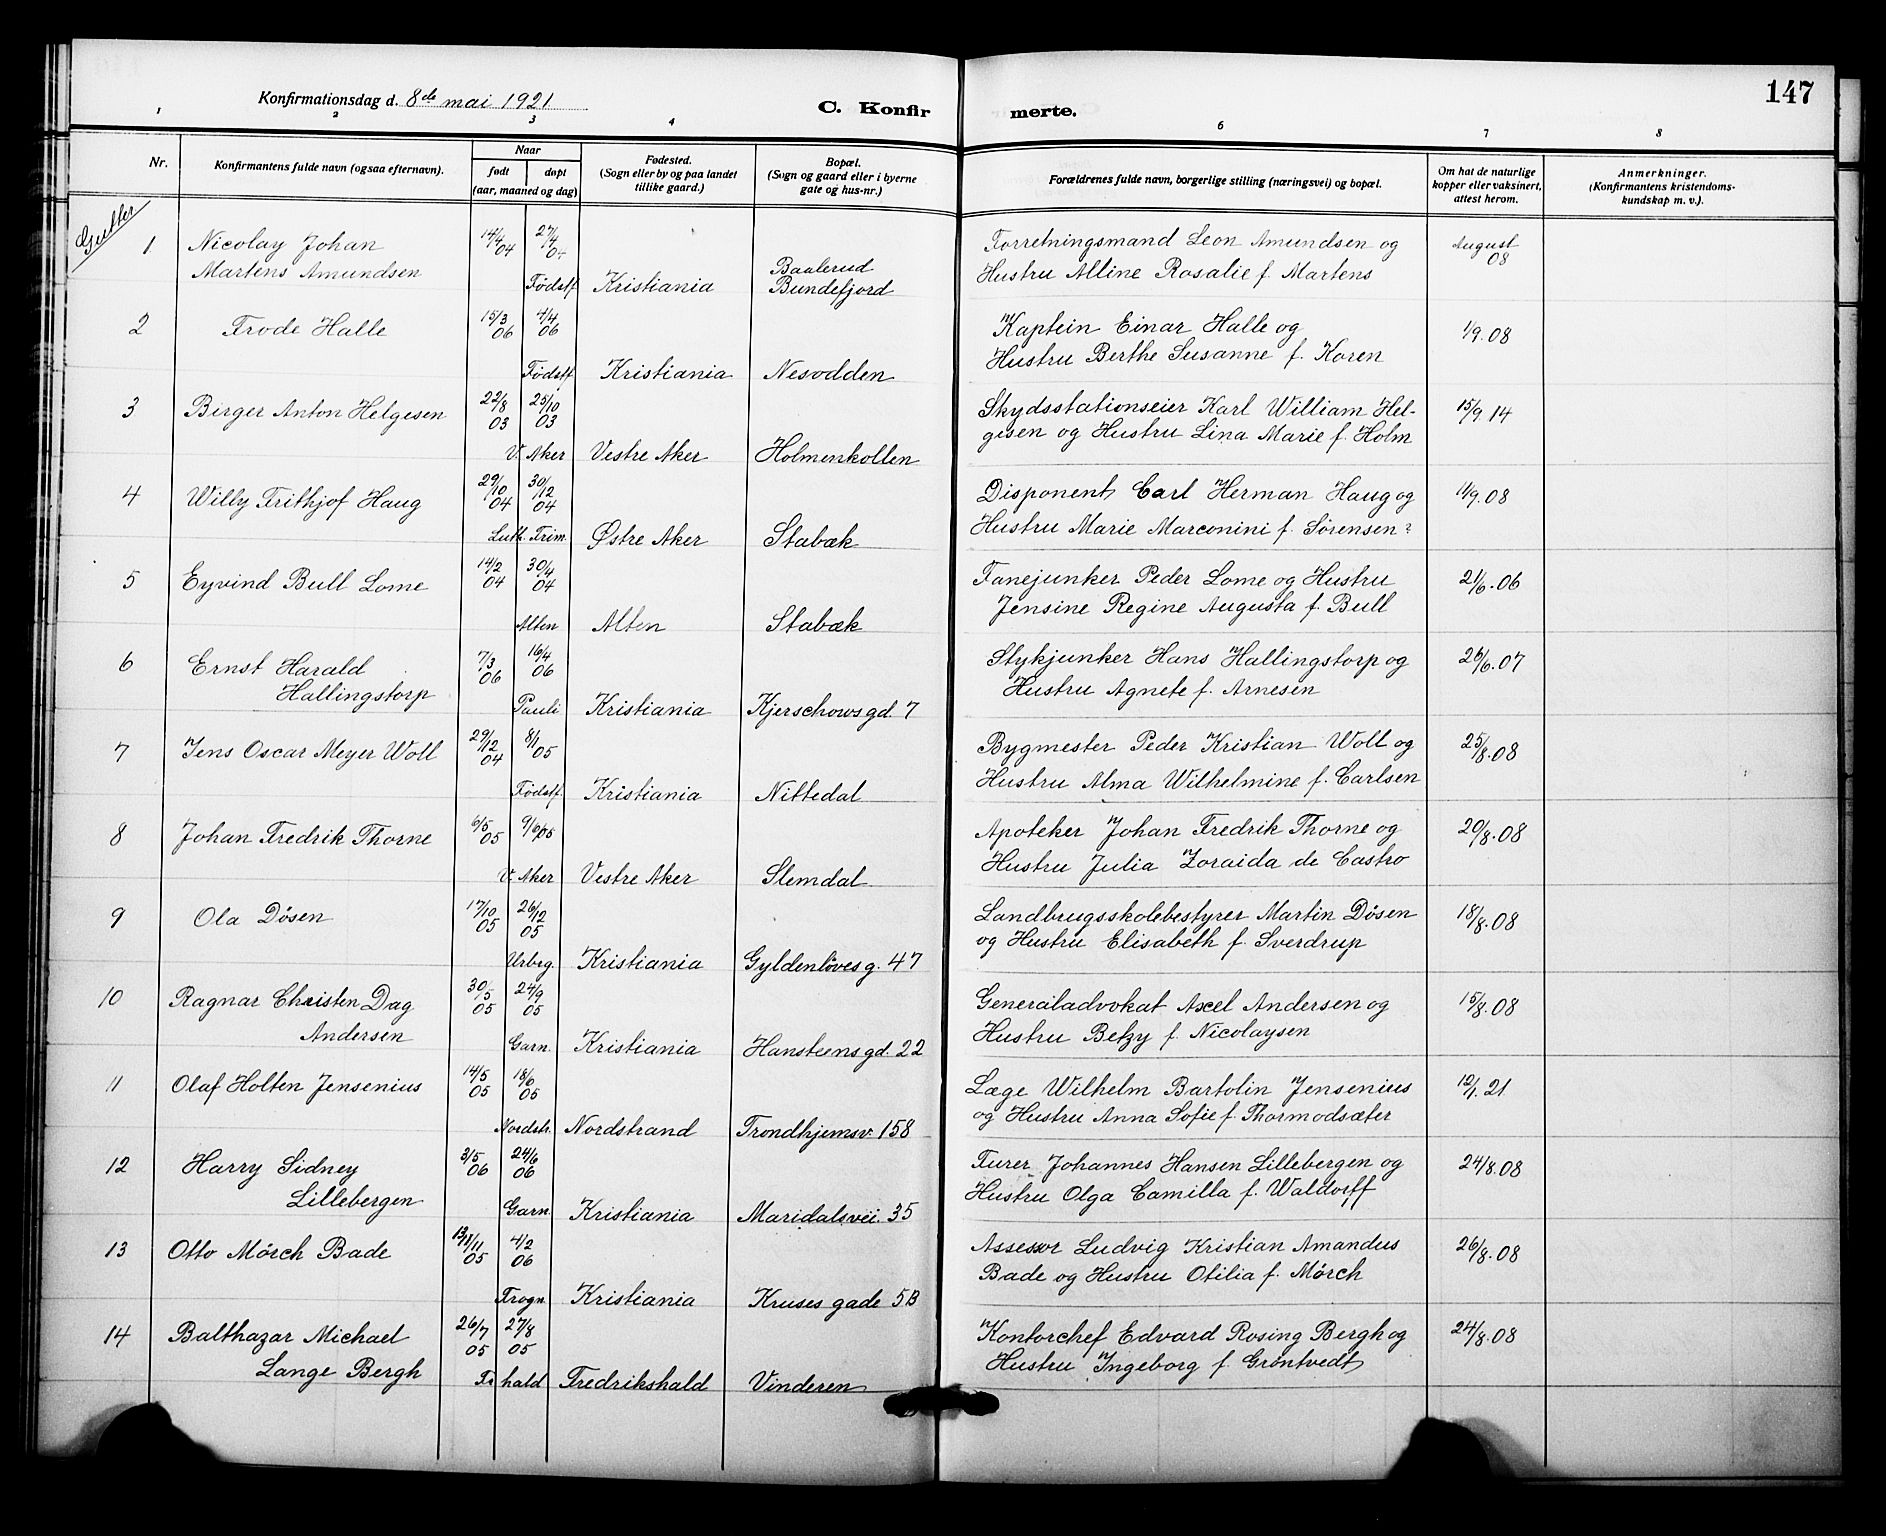 147
Konfirmationsdag d. 8de mai 1921
C. Konfir merte.
1 2 3 4 6 7 8
Nr.
Konfirmantens fulde navn (ogsaa efternavn).
Naar
født døpt
(aar, maaned og dag)
Fødested.
(Sogn eller by og paa landet
tillike gaard.)
Bopæl.
(Sogn og gaard eller i byerne
gate og hus-nr.)
Forældrenes fulde navn, borgerlige stilling (næringsvei) og bopæl.
Om hat de naturlige
kopper eller vaksinert,
attest herom.
Anmerkninger.
(Konfirmantens kristendoms-
kundskap m. v.).
Gutter
1 Nicolay Johan 14/4 04 27/4 04 Forretningsmand Leon Amundsen og August 08
Martens Amundsen Baalerud Hustru Alline Rosalie f. Martens
Fødstf. Kristiania Bundefjord
2 Frode Halle 15/3 06 4/4 06 Kaptein Einar Halle og 1/9.08
Fødstf. Kristiania Nesodden Hustru Berthe Susanne f. Koren
3 Birger Anton Helgesen 22/8 03 25/10 03 Skydsstationseier Karl William Hel- 15/9 14
gesen og Hustru Lina Marie f. Holm
V. Aker Vestre Aker Holmenkollen
4 Willy Frithjof Haug 29/10 04 30/12 04 Disponent Carl Herman Haug og 1/9.08
Luth. Frim. Østre Aker Stabæk Hustru Marie Marconini f. Sørensen?
5 Eyvind Bull Lome 14/2 04 30/4 04 Fanejunker Peder Lome og Hustru 21/6.06
Alten Alten Stabæk Jensine Regine Augusta f. Bull
6 Ernst Harald 7/3 06 16/4 06 Stykjunker Hans Hallingstorp og 26/6.07
Hallingstorp Hustru Agnete f. Arnesen
Pauli Kristiania Kjerschowsgd. 7
7 Jens Oscar Meyer Woll 29/12 04 8/1 05 Bygmester Peder Kristian Woll og 25/8.08
Fødstf. Kristiania Nittedal Hustru Alma Wilhelmine f. Carlsen
8 Johan Fredrik Thorne 6/5 05 9/6 05 Apoteker Johan Fredrik Thorne og 20/8.08
V. Aker Vestre Aker Slemdal Hustru Julia Zoraida de Castro
9 Ola Døsen 17/10 05 26/12 05 Landbrugsskolebestyrer Martin Døsen 18/8.08
og Hustru Elisabeth f. Sverdrup
Urbyg. Kristiania Gyldenløvesg. 47
10 Ragnar Christen Dag 30/5 05 24/9 05 Generaladvokat Axel Andersen og 15/8.08
Andersen Hustru Betzy f. Nicolaysen
Garn. Kristiania Hansteensgd. 22
11 Olaf Holten Jensenius 14/5 05 18/6 05 Læge Wilhelm Bartolin Jensenius 12/1.21
og Hustru Anna Sofie f. Thormodsæter
Nordstr. Nordstrand Trondhjemsv. 158
12 Harry Sidney 3/5 06 24/6 06 Furer Johannes Hansen Lillebergen og 24/8.08
Lillebergen Hustru Olga Camilla f. Waldorff
Garn. Kristiania Maridalsvei. 35
13 Otto Mørch Bade 05 4/2 06 Assessor Ludvig Kristian Amandus 26/8.08
Bade og Hustru Otilia f. Mørch
Frogn. Kristiania Kruses gade 5B
14 Balthazar Michael 26/7 05 27/8 05 Kontorchef Edvard Rosing Bergh og 24/8.08
Lange Bergh Hustru Ingeborg f. Grøntvedt
Fr hald Fredrikshald Vinderen